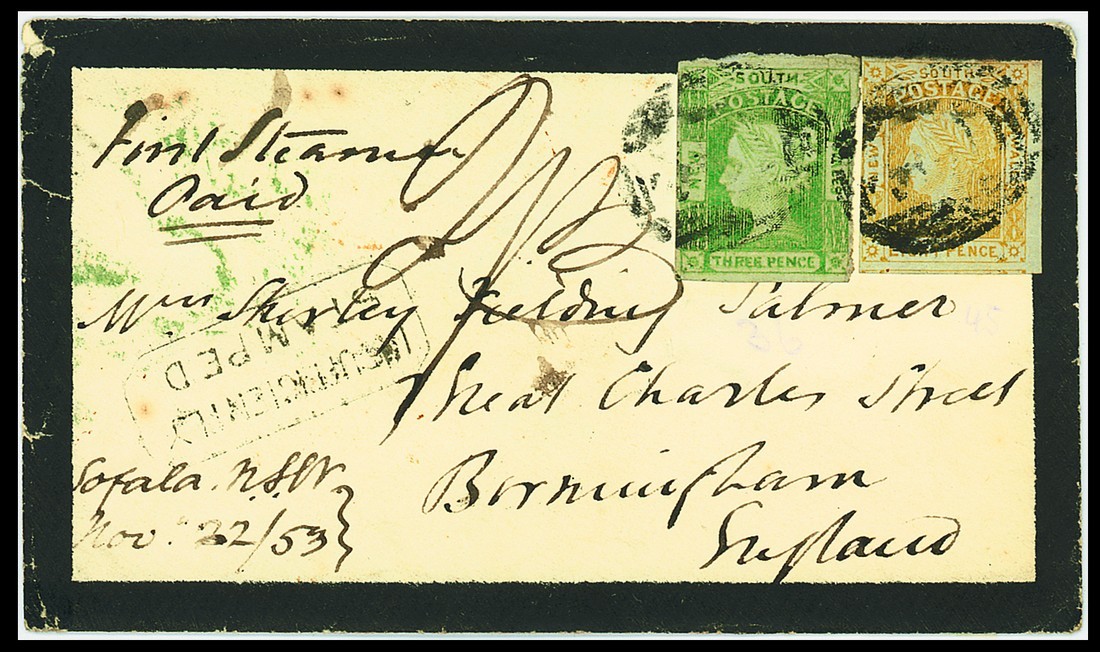 First Steamer
Paid
SOUTH
POSTAGE
NEW
WALES
THREE PENCE
SOUTH
POSTAGE
NEW
WALES
EIGHT PENCE
Mrs Shirley Fielding Palmer
Great Charles Street
Birmingham
England
INSUFFICIENTLY
STAMPED
Sofala N.S.W
Nov. 22/53